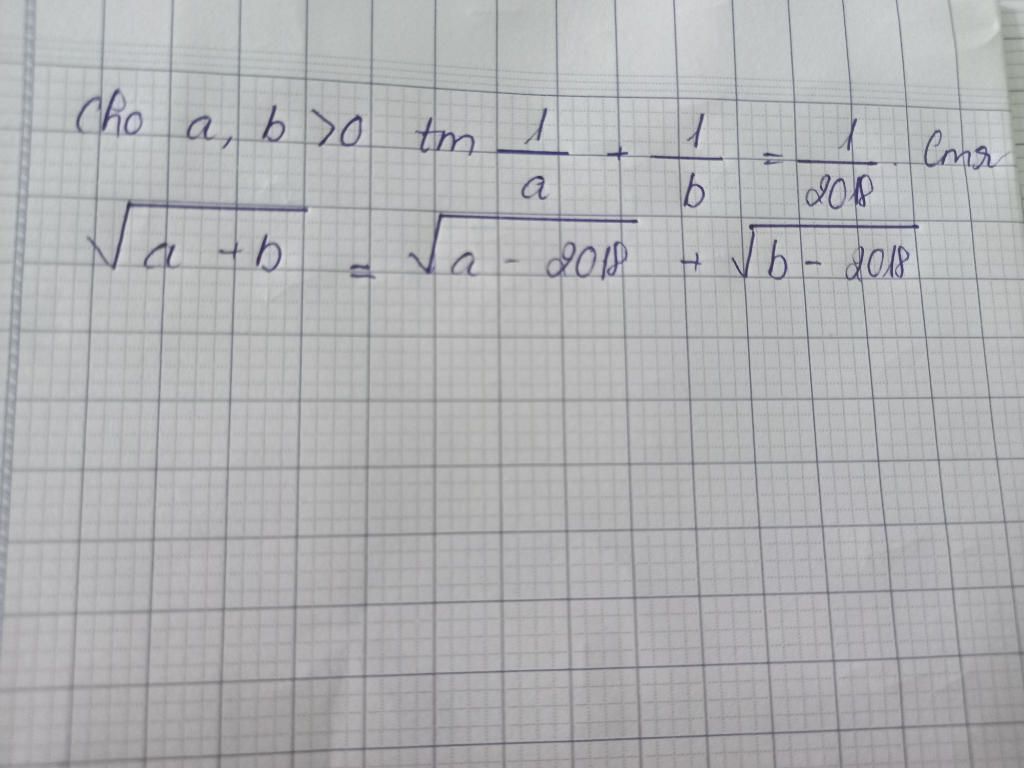 Cho a, b >0 tm 1/a + 1/b = 1/2018. Cmr
√(a + b) = √(a - 2018) + √(b - 2018)